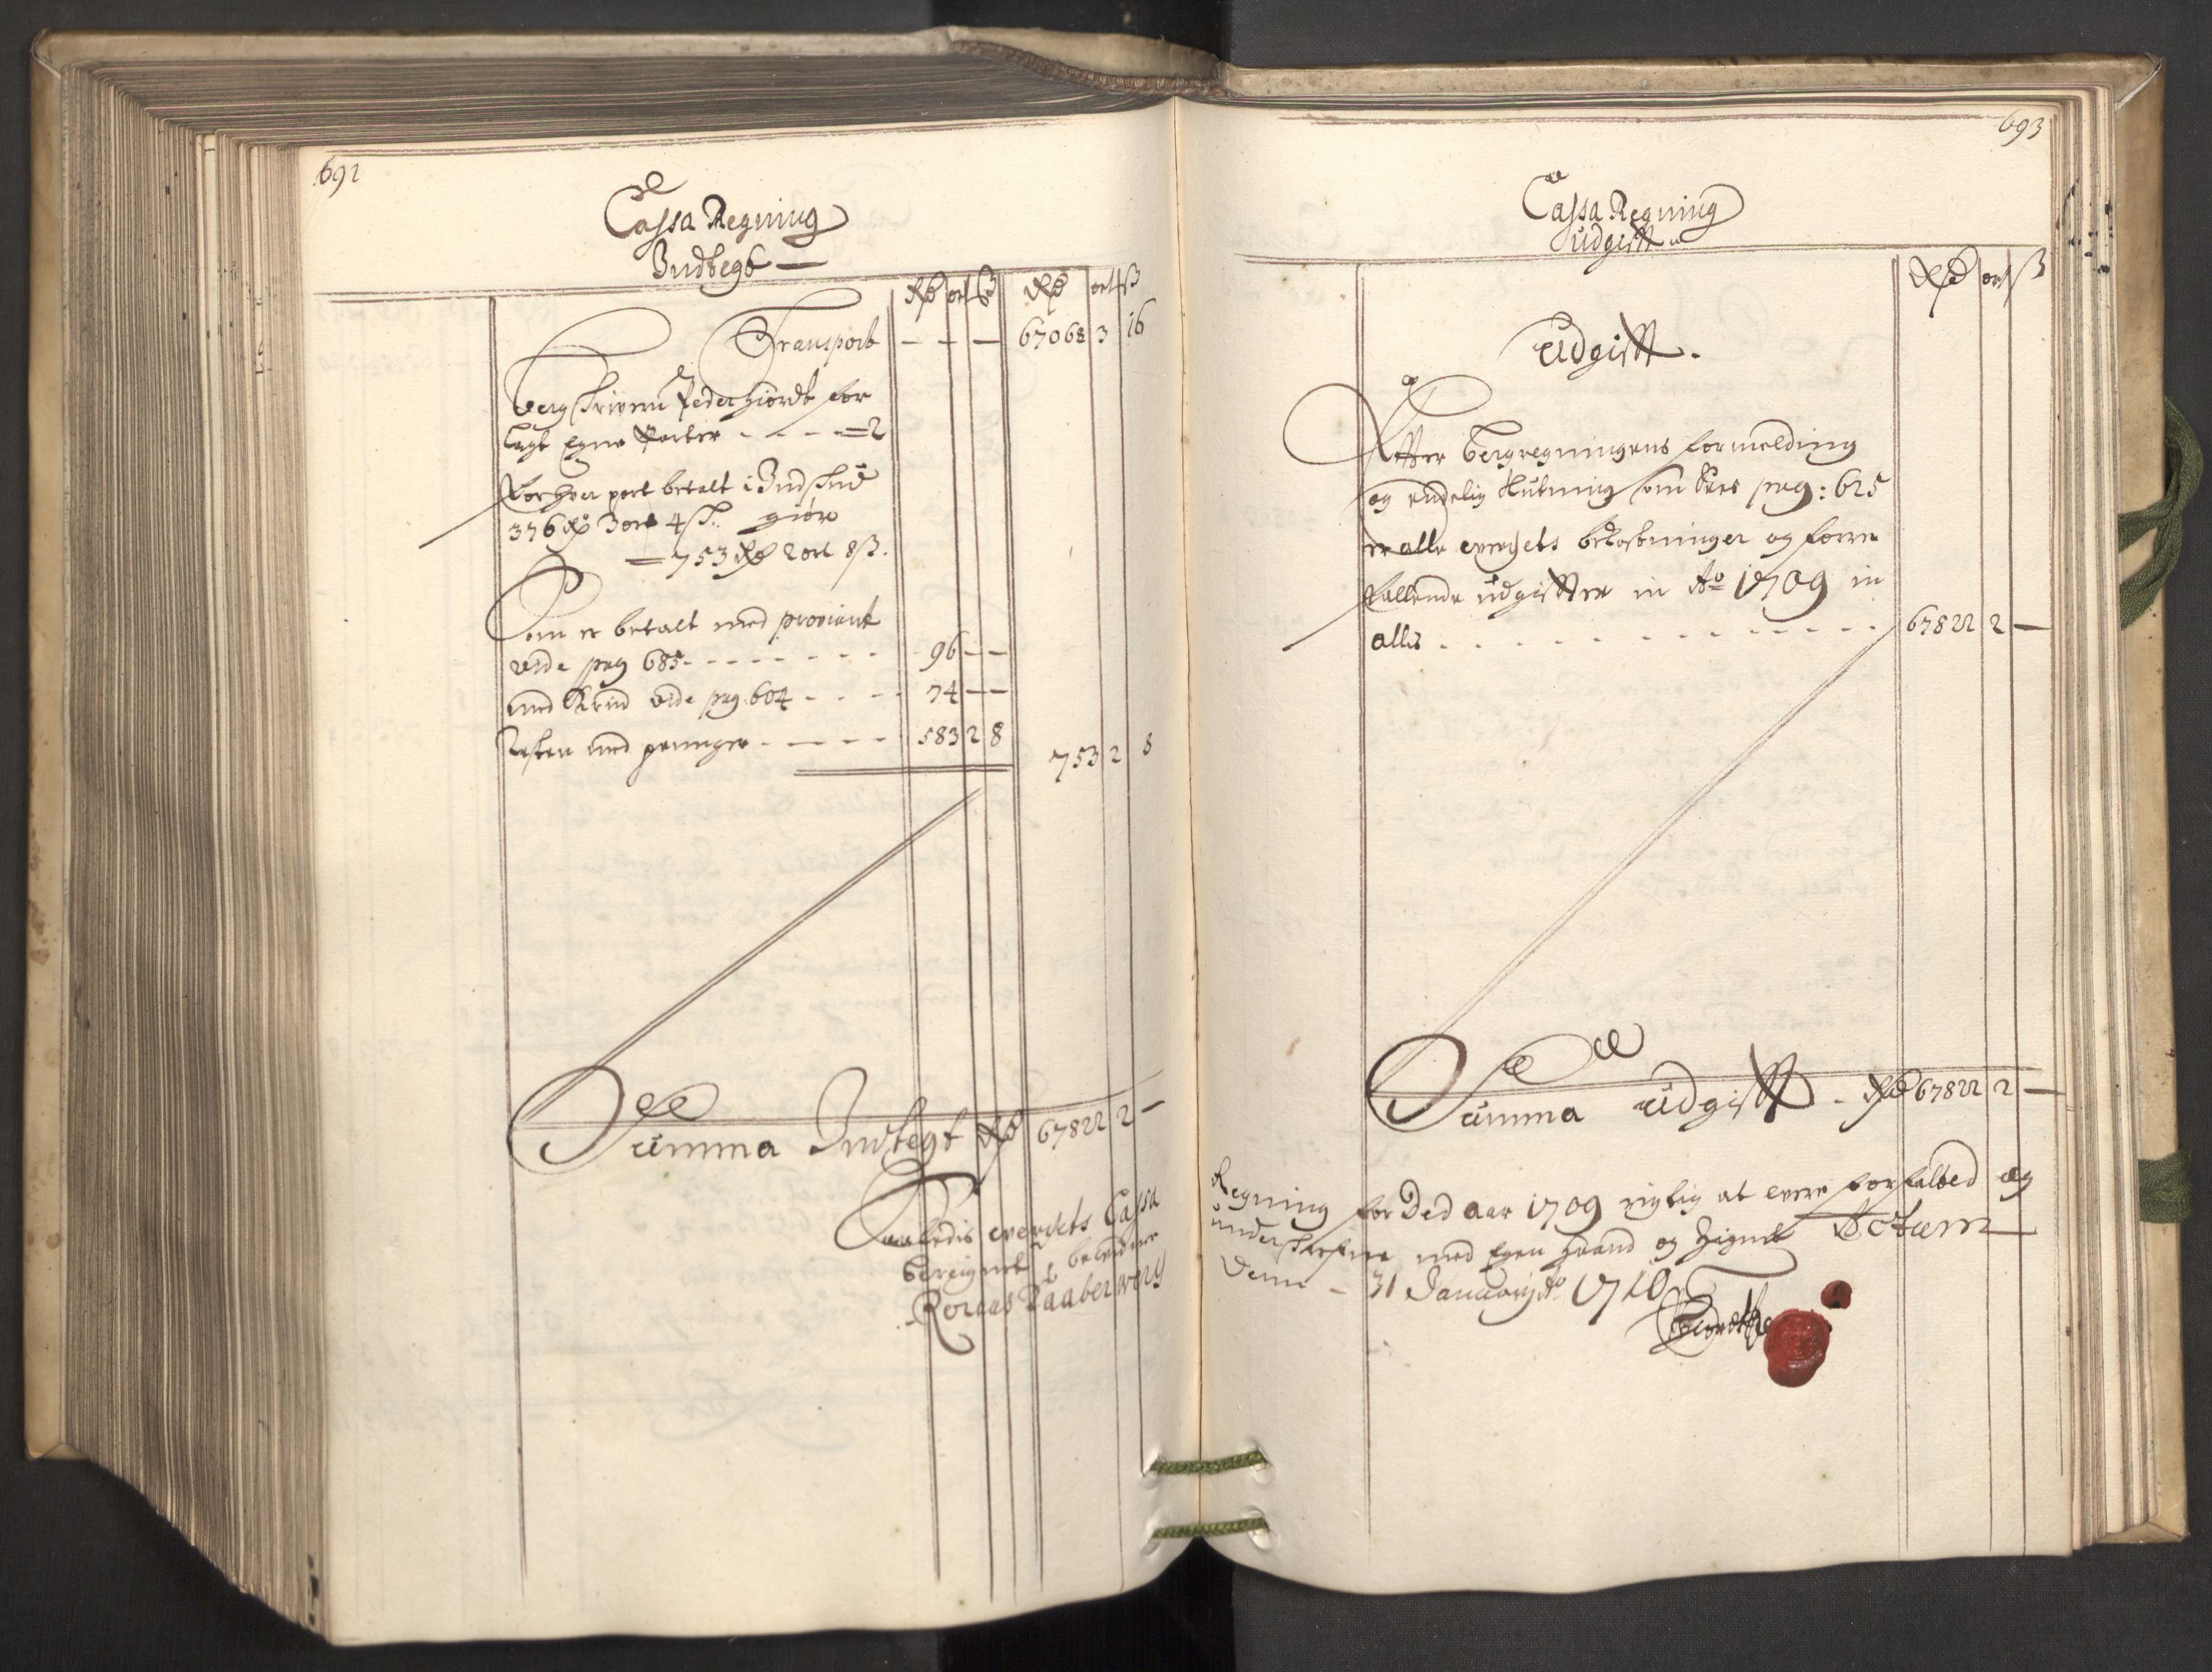 692
Cassa Regning
Indtegt —
Rd ort ß Rd ort ß
Transport — — — 67068 3 16
Bergskrivern Peder Hiordt for
lagt Egne Parter - - - = 2
For hver part betalt i Indskud
376 Rd 3 ort 4 ß. giør
= 753 Rd 2 ort 8 ß.
Som er betalt med proviant
vide pag 685 - - - - - - - 96 — —
med vide pag. 604 - - - - 74 — —
Resten med penninger - - - - - 583 2 8
753 2 8
Summa Indtegt Rd 67822 2 —
Saaledis verchets Cassa
beregnet
Roraas Kaaberwerg
693
Cassa Regning
Udgifft
Rd ort ß
Udgifft.
Effter Bergregningens formelding
og endelig slutning som sees pag: 625
er alle verchets bekostninger og forre
fallende udgiffter in Ao 1709 in
alles - - - - - - - - - - 67822 2 —
Summa Udgifft - Rd 67822 2 —
Regning for Ded aar 1709 rigtig at være forfatted og
underskrefne med Egen Haand og Zignet Actum
Denne - 31 January Ao 1710